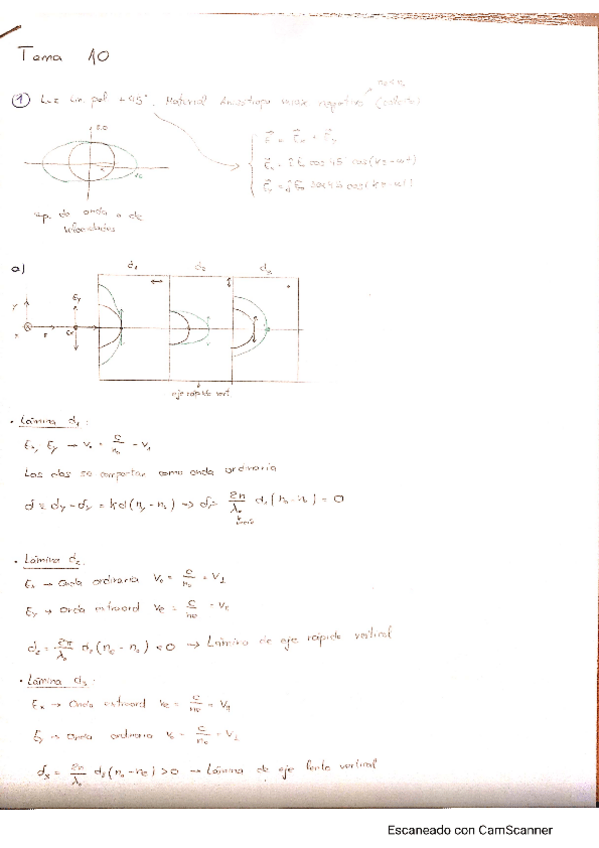 Tema 10
① Luz Lin. pol +45°. Material Anisótropo uniáx negativo (calcita)
E.O
V.O
sup. de onda o de
a) d₁ d₂ d₃
Y Ey
X Z Ex
eje rápido vert.
· Lámina d₁:
Ex, Ey → v₀ = c/n₀ = V₁
Las dos se comportan como onda ordinaria
d = dy - dx = kd(ny - nx) → d₁ = 2π/λ₀ d₁(n₀ - n₀) = 0
· Lámina d₂:
Ex → Onda ordinaria V₀ = c/n₀ = V⊥
Ey → Onda extraord Ve = c/ne = Ve
d₂ = 2π/λ₀ d₂(ne - n₀) < 0 → Lámina de eje rápido vertical
· Lámina d₃:
Ex → Onda extraord Ve = c/ne = V
Ey → Onda ordinaria V₀ = c/n₀ = V⊥
d₃ = 2π/λ₀ d₃(n₀ - ne) > 0 → Lámina de eje lento vertical
Escaneado con CamScanner